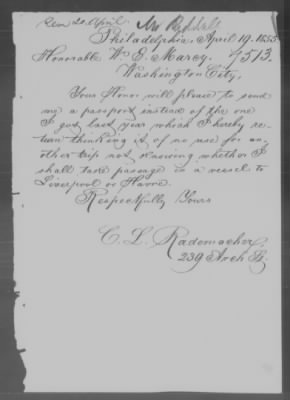 Rec 20 April
Philadelphia, April 19. 1855
Honorable Wm. E. Marcy. 7513.
Washington City,
Your Honor will please to send
me a passport instead of the one
I got last year which I hereby re-
turn thinking it of no use for an-
other trip not knowing whether I
shall take passage in a vessel to
Liverpool or Havre.
Respectfully Yours
C. L. Rademacher,
239 Arch St.